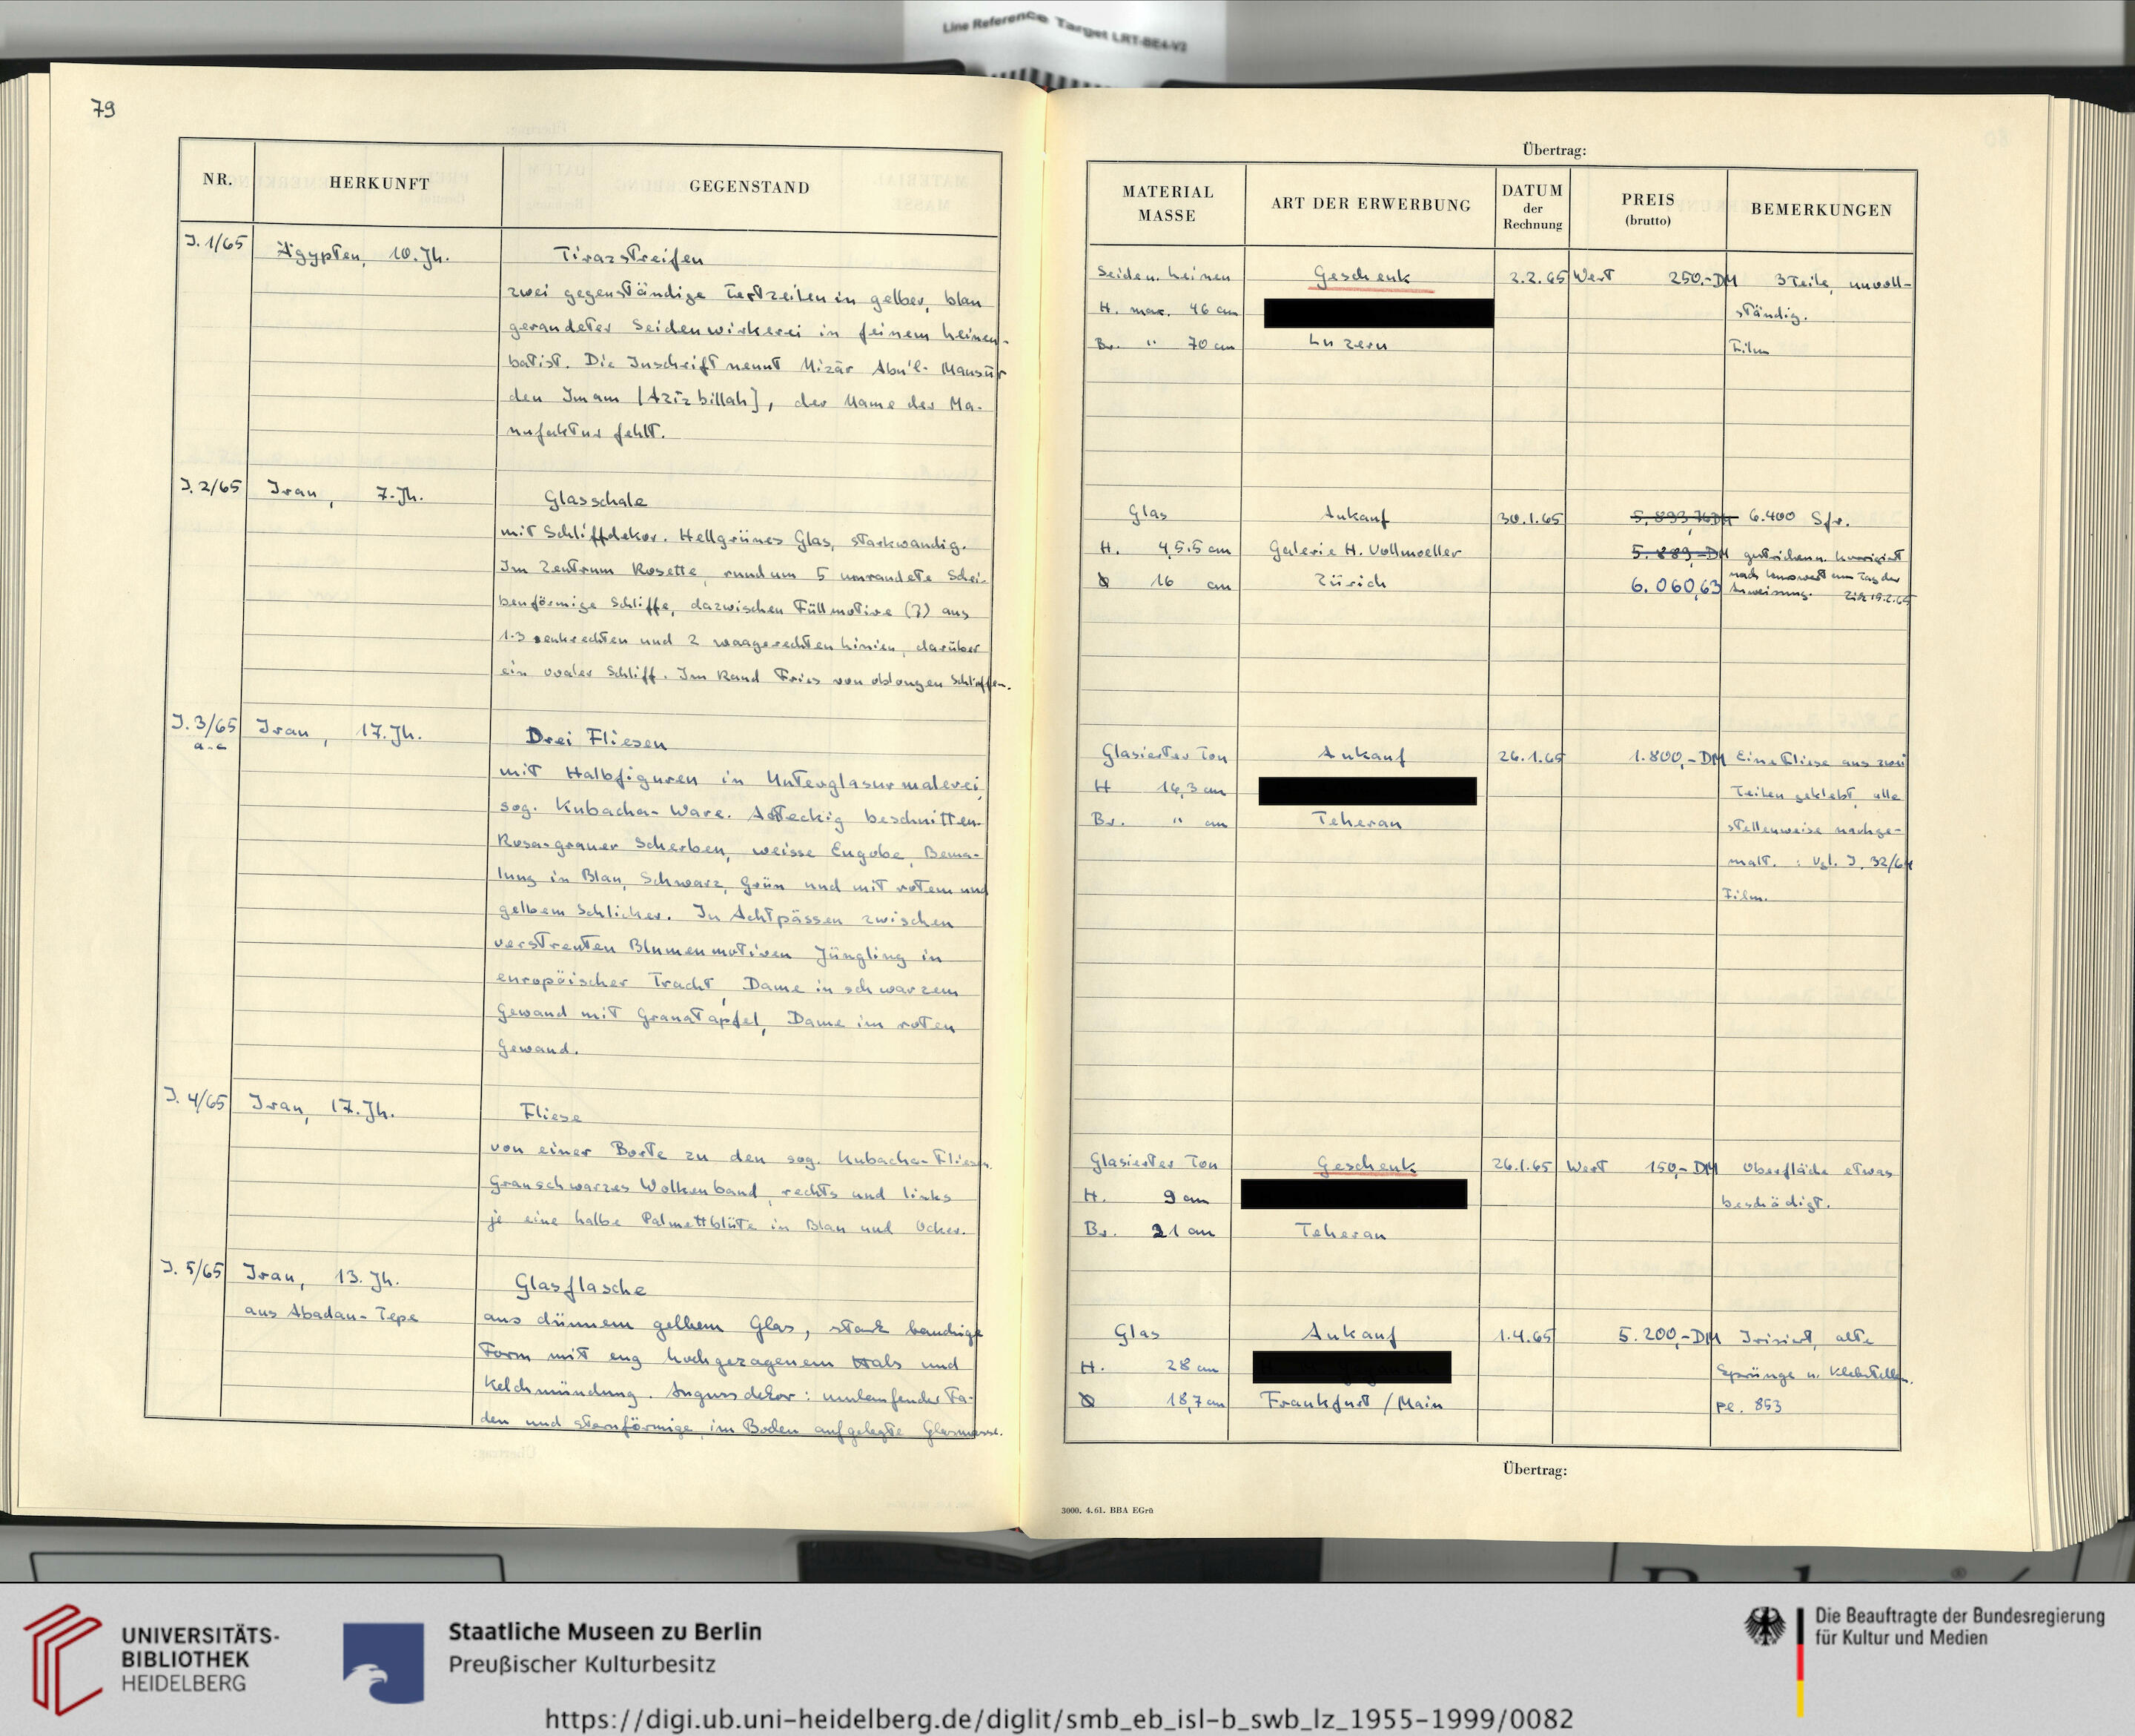 Line Reference Target LRT-BE4-V2
79
NR.
HERKUNFT
GEGENSTAND
J. 1/65
Ägypten, 10. Jh.
Tirazstreifen
zwei gegenständige Textzeilen in gelber, blau
gerandeter Seidenwirkerei in feinem Leinen-
batist. Die Inschrift nennt Nizār Abu'l-Mansūr
den Imam [Azīz billah], der Name der Ma-
nufaktur fehlt.
J. 2/65
Iran, 7. Jh.
Glasschale
mit Schliffdekor. Hellgrünes Glas, starkwandig.
Im Zentrum Rosette, rundum 5 umrandete schei-
benförmige Schliffe, dazwischen Füllmotive (?) aus
1-3 senkrechten und 2 waagerechten Linien, darüber
ein ovaler Schliff. Im Rand Fries von oblongen Schliffen.
J. 3/65
a-c
Iran, 17. Jh.
Drei Fliesen
mit Halbfiguren in Unterglasurmalerei,
sog. Kubacha-Ware. Achteckig beschnitten.
Rosa-grauer Scherben, weisse Engobe, Bema-
lung in Blau, Schwarz, Grün und mit rotem und
gelbem Schlicker. In Achtpässen zwischen
verstreuten Blumenmotiven Jüngling in
europäischer Tracht, Dame in schwarzem
Gewand mit Granatapfel, Dame im roten
Gewand.
J. 4/65
Iran, 17. Jh.
Fliese
von einer Borte zu den sog. Kubacha-Fliesen.
Grauschwarzes Wolkenband, rechts und links
je eine halbe Palmettblüte in Blau und Ocker.
J. 5/65
Iran, 13. Jh.
aus Abadan-Tepe
Glasflasche
aus dünnem gelbem Glas, stark bauchige
Form mit eng hochgezogenem Hals und
Kelchmündung. Angussdekor: umlaufender Fa-
den und sternförmige, im Boden aufgelegte Glasmasse.
Übertrag:
MATERIAL
MASSE
ART DER ERWERBUNG
DATUM
der
Rechnung
PREIS
(brutto)
BEMERKUNGEN
Seide u. Leinen
H. max. 46 cm
Br. " 70 cm
Geschenk
Luzern
2.2.65
Wert 250.-DM
3 Teile, unvoll-
ständig.
Film
Glas
H. 4,5.5 cm
Ø 16 cm
Ankauf
Galerie H. Vollmoeller
Zürich
30.1.65
5.893,76 DM
5.889,-DM
6.060,63
6.400 Sfr.
gestrichen u. korrigiert
nach Kurswert am Tag der
Anweisung.
Glasierter Ton
H 14,3 cm
Br. " cm
Ankauf
Teheran
26.1.65
1.800,-DM
Eine Fliese aus zwei
Teilen geklebt, alle
stellenweise nachge-
malt. : Vgl. J. 32/64
Film.
Glasierter Ton
H. 9 cm
Br. 21 cm
Geschenk
Teheran
26.1.65
Wert 150,-DM
Oberfläche etwas
beschädigt.
Glas
H. 28 cm
Ø 18,7 cm
Ankauf
Frankfurt / Main
1.4.65
5.200,-DM
Irisiert, alte
Sprünge u. Klebstellen.
Pl. 853
Übertrag:
3000. 4.61. BBA EGrü
UNIVERSITÄTS-
BIBLIOTHEK
HEIDELBERG
Staatliche Museen zu Berlin
Preußischer Kulturbesitz
Die Beauftragte der Bundesregierung
für Kultur und Medien
https://digi.ub.uni-heidelberg.de/diglit/smb_eb_isl-b_swb_lz_1955-1999/0082